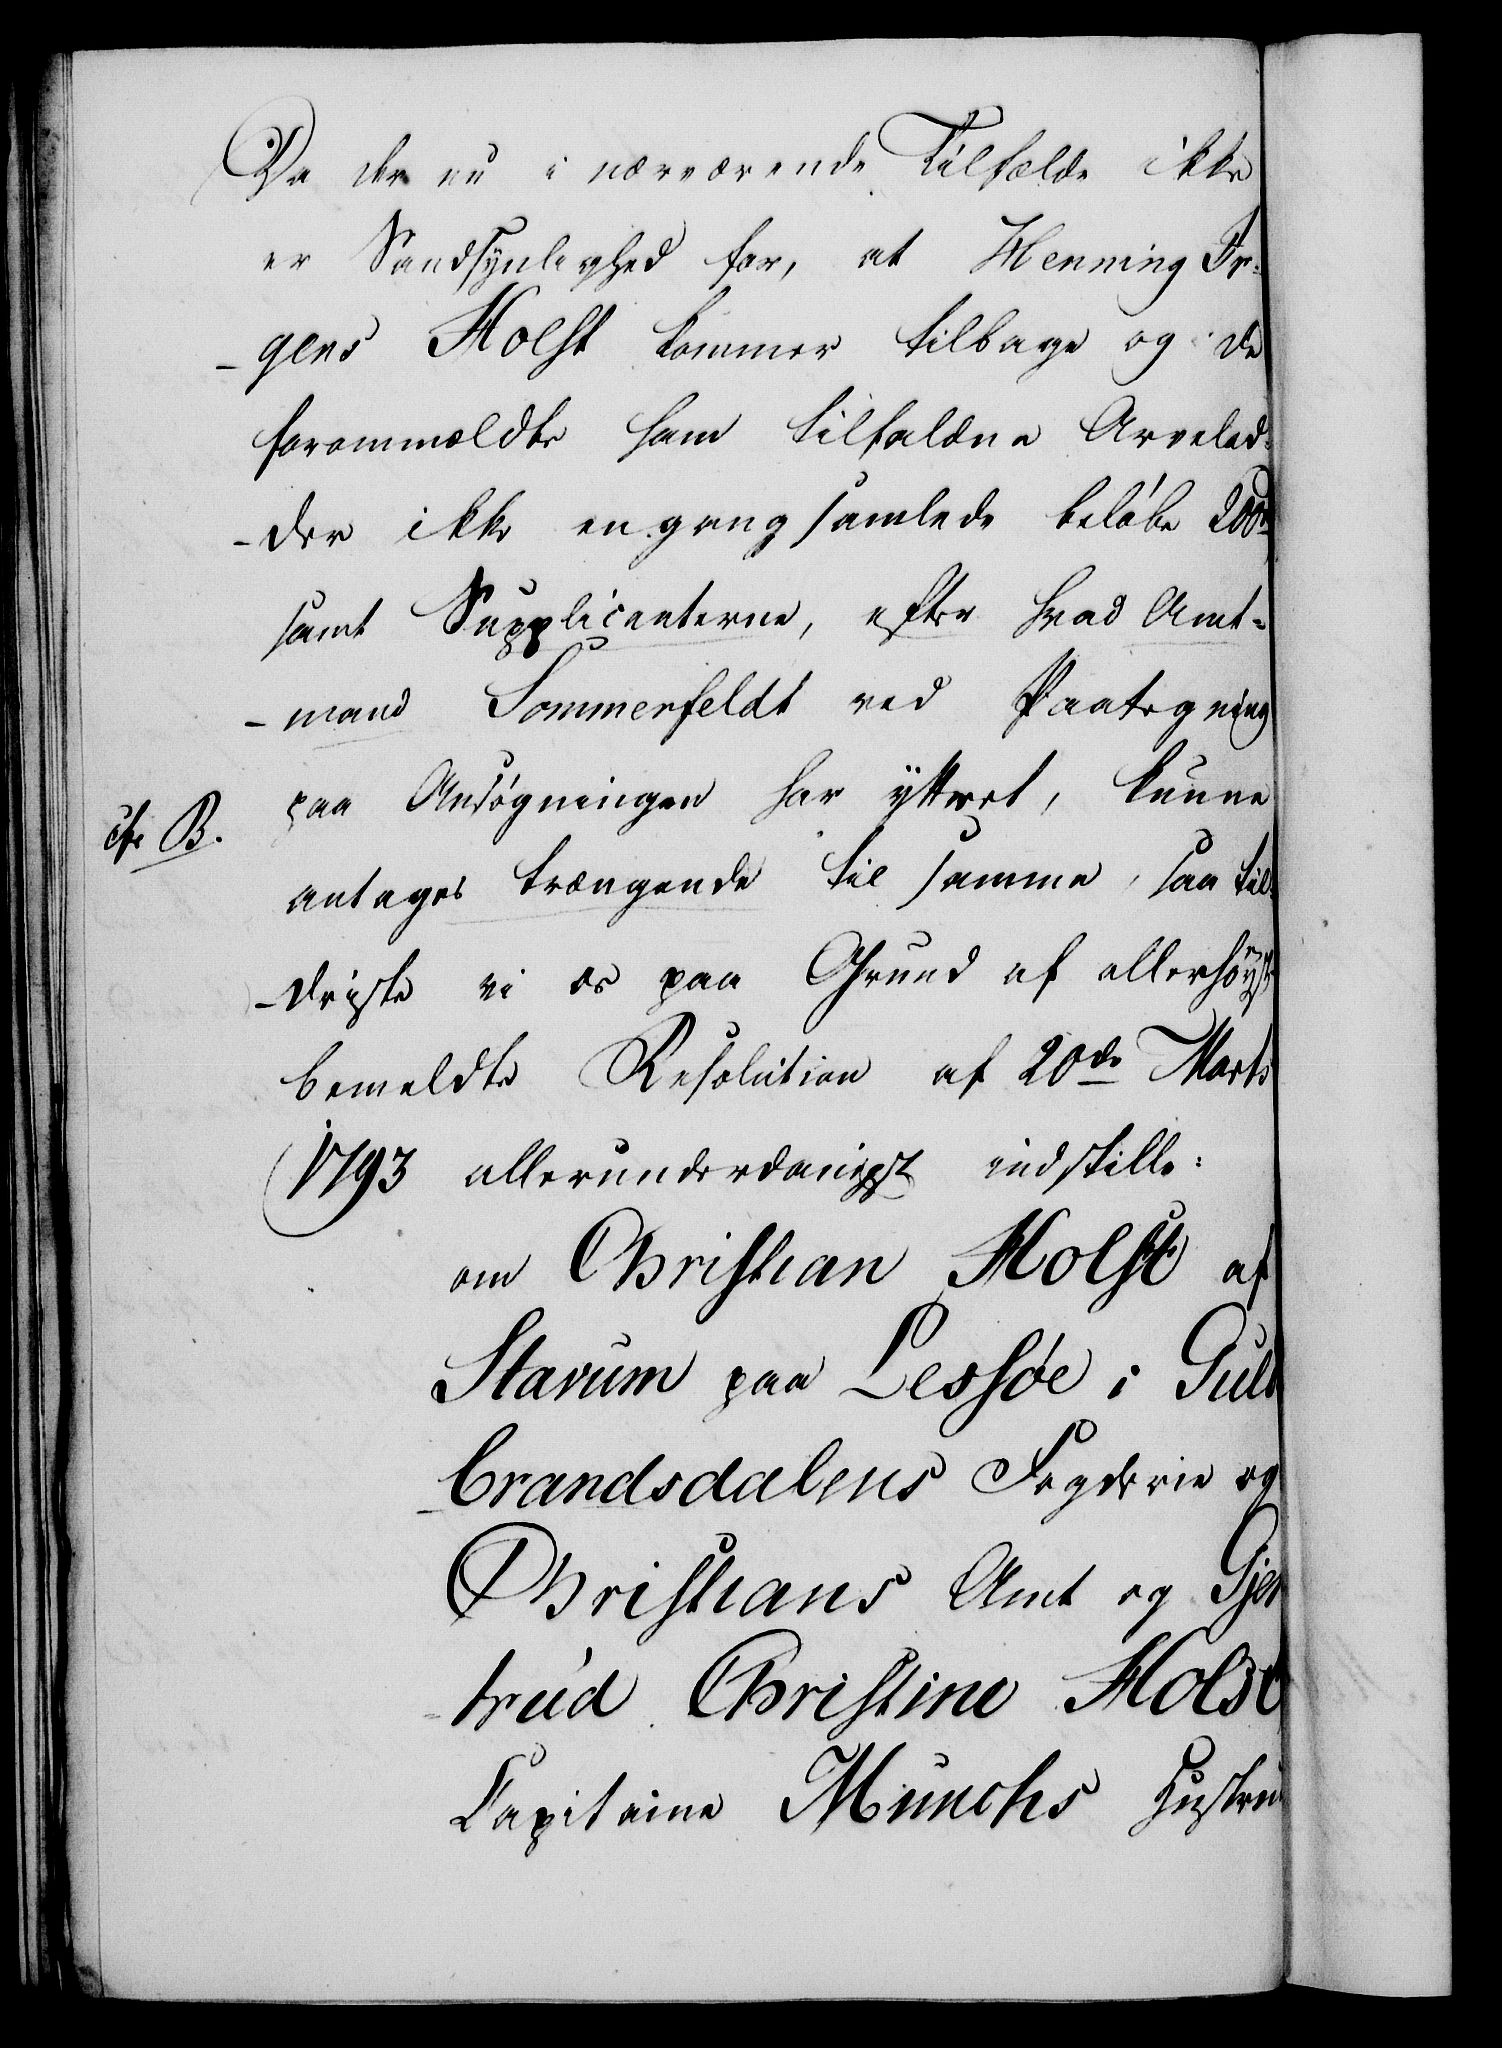 Da der nu i nærværende Tilfælde ikke
er Sandsynlighed for, at Henning Ir-
-gens Holst kommer tilbage og de
forommeldte ham tilfaldne Arvelod-
-der ikke engang samlede beløbe 200
samt Supplicanterne, efter hvad Amt-
-mand Sommerfeldt ved Paategning
paa Ansøgningen har yttret, kunne
cfr B.
antages trængende til samme, saa til-
-driste vi os paa Grund af allerhøyst
bemeldte Resolution af 20de Marts
1793 allerunderdanigst indstille:
om Christian Holst af
Stavum paa Lessøe i Guld
-brandsdalens Fogderie og
Christians Amt og Gjer
-trud Christine Holst
Capitaine Munchs Hustru